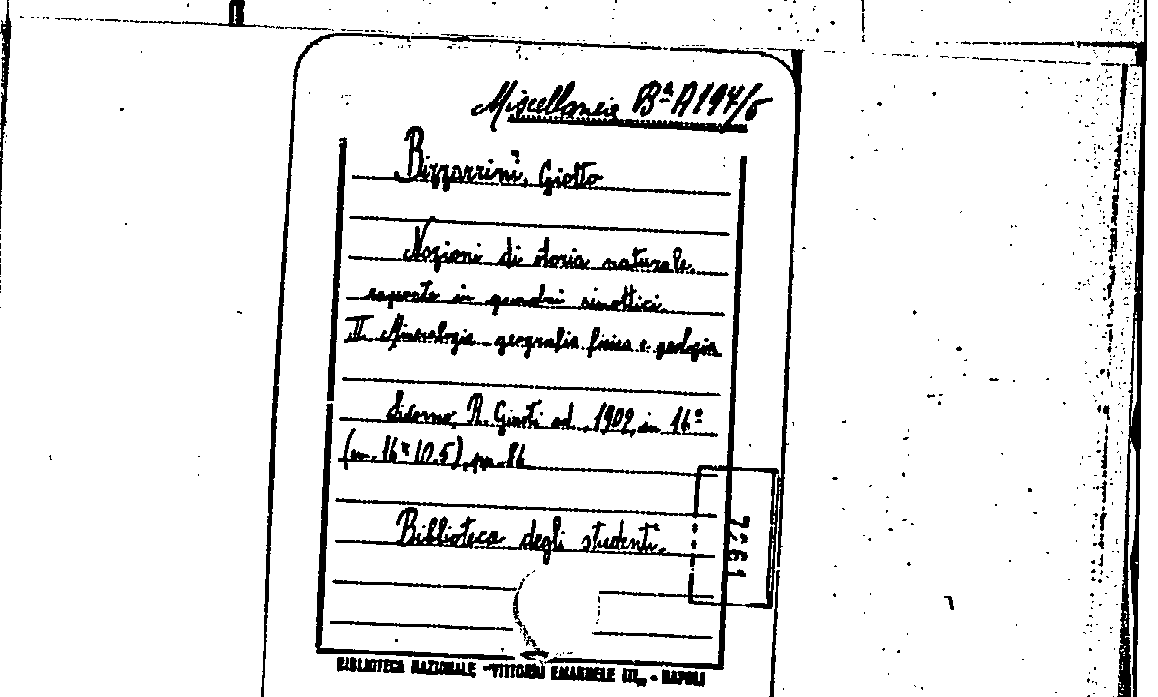 Miscellanea Bª A 194/5
Bizzarrini, Giotto
Nozioni di storia naturale
esposte in quadri sinottici.
II. Mineralogia geografia fisica e geologia
Livorno, R. Giusti ed. 1902, in 16º
(cm. 16 x 10.5), pp. 86
Biblioteca degli studenti.
BIBLIOTECA NAZIONALE "VITTORIO EMANUELE III" - NAPOLI